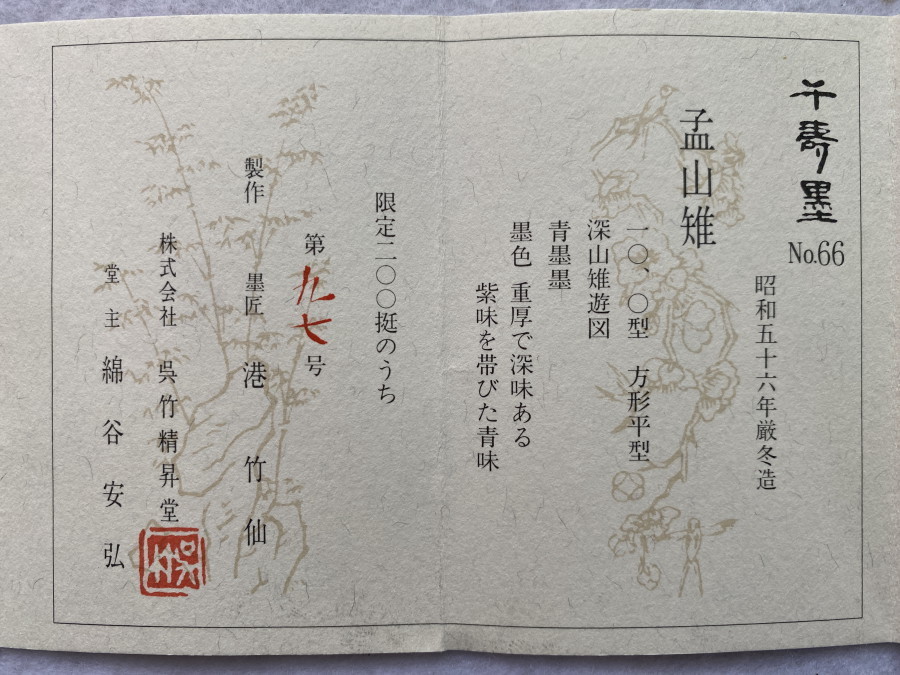 千壽墨
No.66
昭和五十六年厳冬造
孟山雉
一〇、〇型 方形平型
深山雉遊図
青墨墨
墨色 重厚で深味ある
紫味を帯びた青味
限定二〇〇挺のうち
第九七号
製作 墨匠 港竹仙
株式会社 呉竹精昇堂
堂主 綿谷安弘
呉竹